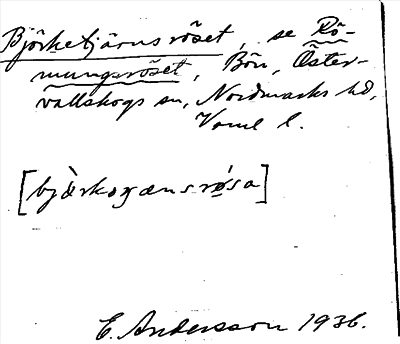 Björketjärnsröset, se Rö-
mungsröset, Bön, Öster-
vallskogs sn, Nordmarks hd,
Verml l.
[bjärkozænsrösa]
E. Andersson 1936.